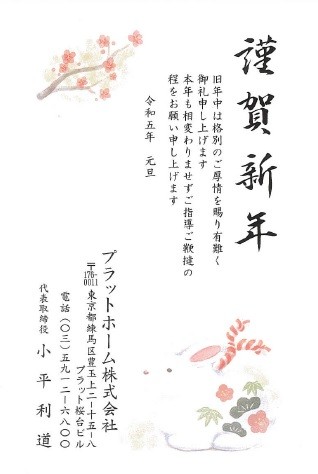 謹賀新年
旧年中は格別のご厚情を賜り有難く
御礼申し上げます
本年も相変わりませずご指導ご鞭撻の
程をお願い申し上げます
令和五年 元旦
プラットホーム株式会社
〒176-0011 東京都練馬区豊玉上二-十五-八
プラット桜台ビル
電話(〇三)五九一二-六八〇〇
代表取締役 小平利道